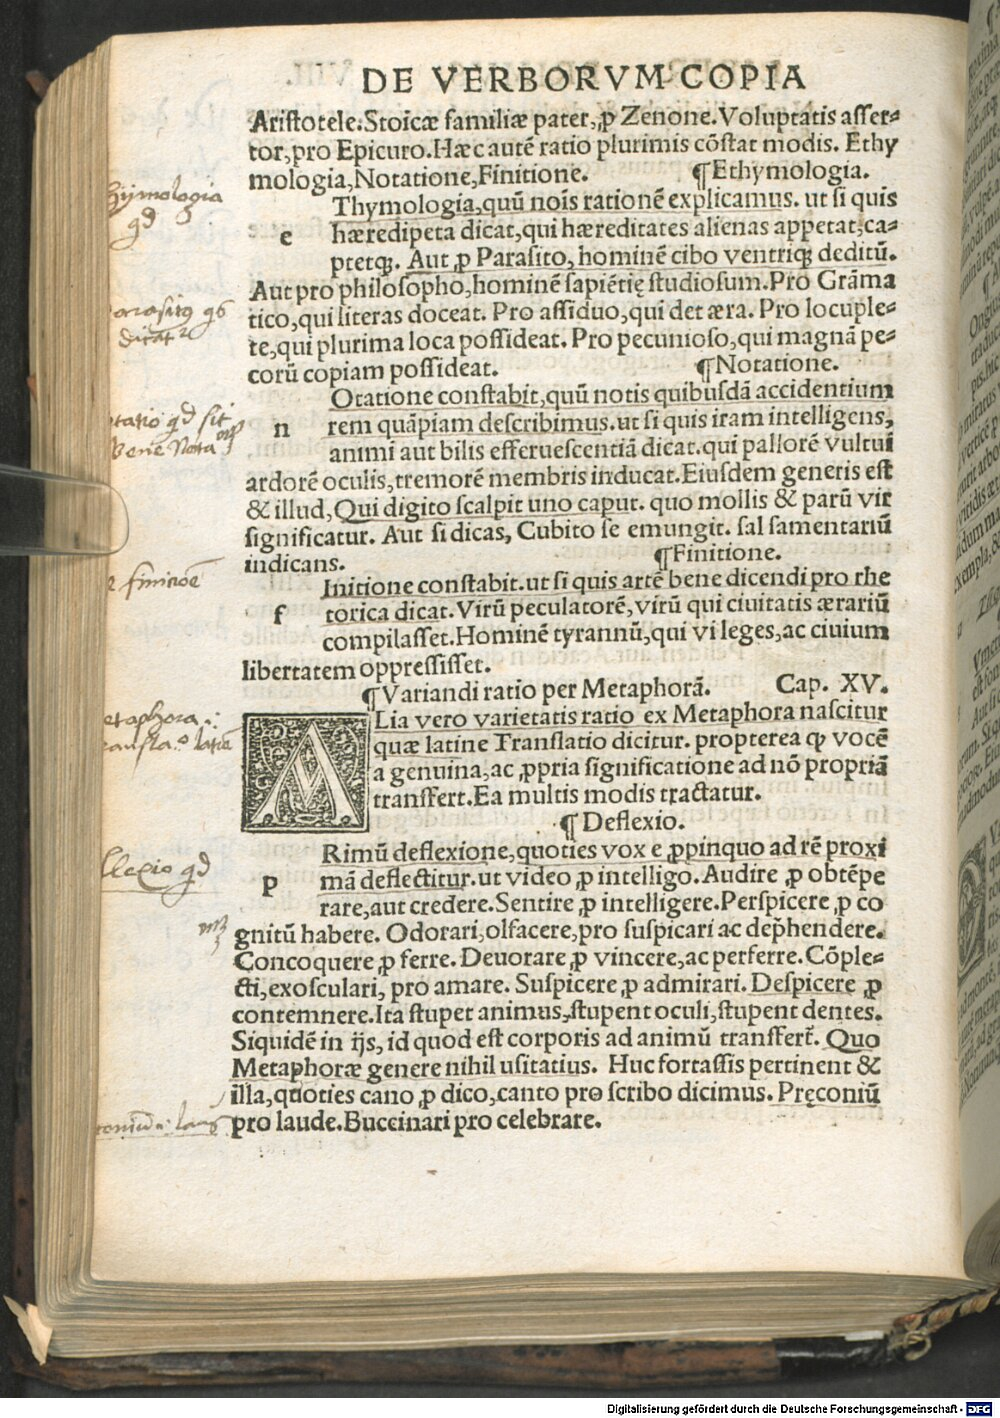 DE VERBORVM COPIA
Ariſtotele.Stoicæ familiæ pater,ꝓ Zenone.Voluptatis aſſer⸗
tor,pro Epicuro.Hæc autē ratio plurimis cōſtat modis. Ethy
mologia,Notatione,Finitione. ¶Ethymologia.
Thymologia,quū noīs rationē explicamus. ut ſi quis
e hæredipeta dicat,qui hæreditates alienas appetat,ca⸗
ptetqꝫ. Aut ꝓ Paraſito, hominē cibo ventriqꝫ deditū.
Aut pro philoſopho,hominē ſapiētię ſtudioſum.Pro Grāma
tico,qui literas doceat. Pro aſſiduo,qui det æra. Pro locuple⸗
te,qui plurima loca poſſideat. Pro pecunioſo,qui magnā pe⸗
corū copiam poſſideat. ¶Notatione.
Otatione conſtabit,quū notis quibuſdā accidentium
n rem quāpiam deſcribimus.ut ſi quis iram intelligens,
animi aut bilis efferueſcentiā dicat.qui pallorē vultui
ardorē oculis,tremorē membris inducat.Eiuſdem generis eſt
& illud,Qui digito ſcalpit uno caput. quo mollis & parū vir
ſignificatur. Aut ſi dicas, Cubito ſe emungit. ſal ſamentariū
indicans. ¶Finitione.
Initione conſtabit.ut ſi quis artē bene dicendi pro rhe
f torica dicat.Virū peculatorē,virū qui ciuitatis ærariū
compilaſſet.Hominē tyrannū,qui vi leges,ac ciuium
libertatem oppreſſiſſet.
¶Variandi ratio per Metaphorā. Cap. XV.
ALia vero varietatis ratio ex Metaphora naſcitur
quæ latine Tranſlatio dicitur. propterea ꝙ vocē
a genuina,ac ꝓpria ſignificatione ad nō propriā
tranſfert.Ea multis modis tractatur.
¶Deflexio.
Rimū deflexione,quoties vox e ꝓpinquo ad rē proxi
p mā deflectitur.ut video ꝓ intelligo.Audire ꝓ obtēpe
rare,aut credere.Sentire ꝓ intelligere.Perſpicere ꝓ co
gnitū habere. Odorari,olfacere,pro ſuſpicari ac dep̄hendere.
Concoquere ꝓ ferre. Deuorare ꝓ vincere,ac perferre. Cōple⸗
cti,exoſculari, pro amare. Suſpicere ꝓ admirari. Deſpicere ꝓ
contemnere.Ita ſtupet animus,ſtupent oculi,ſtupent dentes.
Siquidē in ijs, id quod eſt corporis ad animū tranſfert̄. Quo
Metaphoræ genere nihil uſitatius. Huc fortaſſis pertinent &
illa,quoties cano ꝓ dico,canto pro ſcribo dicimus. Pręconiū
pro laude.Buccinari pro celebrare.
Digitalisierung gefördert durch die Deutsche Forschungsgemeinschaft - DFG